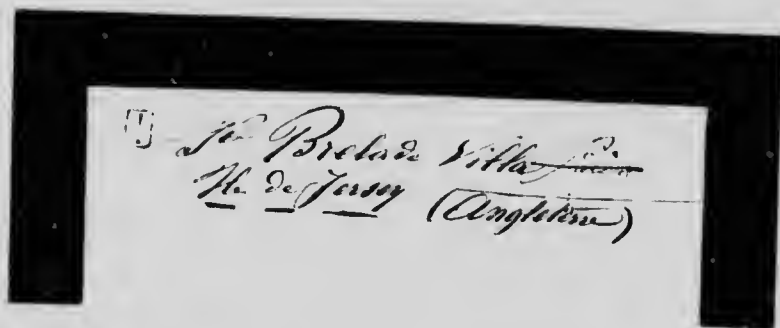 St Brelade Villa
Ile de Jersey (Angleterre)